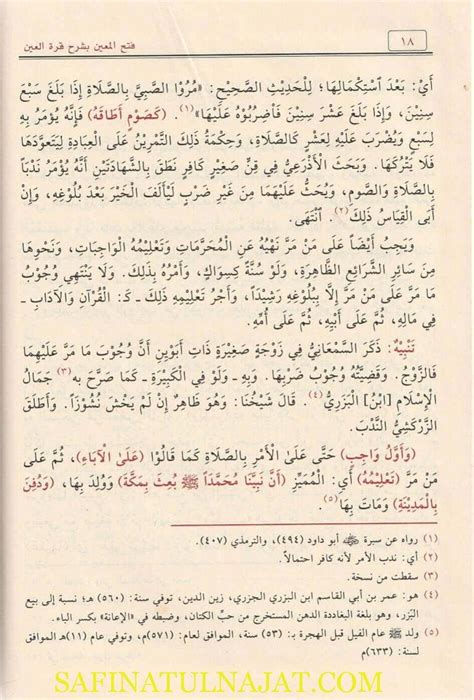 ١٨
فتح المعين بشرح قرة العين
أَيْ: بَعْدَ اسْتِكْمَالِهَا؛ لِلْحَدِيثِ الصَّحِيحِ: «مُرُوْا الصَّبِيَّ بِالصَّلَاةِ إِذَا بَلَغَ سَبْعَ
سِنِيْنَ، وَإِذَا بَلَغَ عَشْرَ سِنِيْنَ فَاضْرِبُوْهُ عَلَيْهَا»(١). (كَصَوْمٍ أَطَاقَهُ) فَإِنَّهُ يُؤْمَرُ بِهِ
لِسَبْعٍ وَيُضْرَبُ عَلَيْهِ لِعَشْرٍ كَالصَّلَاةِ، وَحِكْمَةُ ذَلِكَ التَّمْرِيْنُ عَلَى الْعِبَادَةِ لِيَتَعَوَّدَهَا
فَلَا يَتْرُكَهَا. وَبَحَثَ الْأَذْرَعِيُّ فِي قِنٍّ صَغِيْرٍ كَافِرٍ نَطَقَ بِالشَّهَادَتَيْنِ أَنَّهُ يُؤْمَرُ نَدْبًا
بِالصَّلَاةِ وَالصَّوْمِ، وَيُحَثُّ عَلَيْهِمَا مِنْ غَيْرِ ضَرْبٍ لِيَأْلَفَ الْخَيْرَ بَعْدَ بُلُوْغِهِ، وَإِنْ
أَبَى الْقِيَاسُ ذَلِكَ(٢). انْتَهَى.
وَيَجِبُ أَيْضًا عَلَى مَنْ مَرَّ نَهْيُهُ عَنِ الْمُحَرَّمَاتِ وَتَعْلِيْمُهُ الْوَاجِبَاتِ، وَنَحْوِهَا
مِنَ سَائِرِ الشَّرَائِعِ الظَّاهِرَةِ، وَلَوْ سُنَّةً كَسِوَاكٍ، وَأَمْرُهُ بِذَلِكَ. وَلَا يَنْتَهِي وُجُوْبُ
مَا مَرَّ عَلَى مَنْ مَرَّ إِلَّا بِبُلُوْغِهِ رَشِيْدًا، وَأُجْرَةُ تَعْلِيْمِهِ ذَلِكَ ـ كَـ: الْقُرْآنِ وَالْآدَابِ ـ
فِي مَالِهِ، ثُمَّ عَلَى أَبِيْهِ، ثُمَّ عَلَى أُمِّهِ.
تَنْبِيْهٌ: ذَكَرَ السَّمْعَانِيُّ فِي زَوْجَةٍ صَغِيْرَةٍ ذَاتِ أَبَوَيْنِ أَنَّ وُجُوْبَ مَا مَرَّ عَلَيْهِمَا
فَالزَّوْجُ. وَقَضِيَّتُهُ وُجُوْبُ ضَرْبِهَا. وَبِهِ ـ وَلَوْ فِي الْكَبِيْرَةِ ـ كَمَا صَرَّحَ بِهِ(٣) جَمَالُ
الْإِسْلَامِ [ابْنُ] الْبَزَرِيُّ(٤). قَالَ شَيْخُنَا: وَهُوَ ظَاهِرٌ إِنْ لَمْ يَخْشَ نُشُوْزًا. وَأَطْلَقَ
الزَّرْكَشِيُّ النَّدْبَ.
(وَأَوَّلُ وَاجِبٍ) حَتَّى عَلَى الْأَمْرِ بِالصَّلَاةِ كَمَا قَالُوْا (عَلَى الْآبَاءِ)، ثُمَّ عَلَى
مَنْ مَرَّ (تَعْلِيْمُهُ) أَيْ: الْمُمَيِّزِ (أَنَّ نَبِيَّنَا مُحَمَّدًا ﷺ بُعِثَ بِمَكَّةَ) وَوُلِدَ بِهَا، (وَدُفِنَ
بِالْمَدِيْنَةِ) وَمَاتَ بِهَا.(٥)
(١) رواه عن سبرة ﷺ أبو داود (٤٩٤)، والترمذي (٤٠٧).
(٢) أي: ندب الأمر لأنه كافر احتمالاً.
(٣) سقطت من نسخة.
(٤) هو: عمر بن أبي القاسم ابن البزري الجزري، زين الدين، توفي سنة: (٥٦٠) هـ؛ نسبة إلى بيع
البَزْر، وهو بلغة البغاددة الدهن المستخرج من حبّ الكتان، وضبطه في «الإعانة» بكسر الباء.
(٥) ولد ﷺ عام الفيل قبل الهجرة بـ: (٥٣) سنة، الموافق لعام: (٥٧١)م، وتوفي عام (١١)هـ الموافق
لسنة: (٦٣٣)م
SAFINATULNAJAT.COM